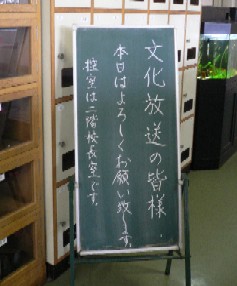 文化放送の皆様
本日はよろしくお願い致します。
控室は二階校長室です。